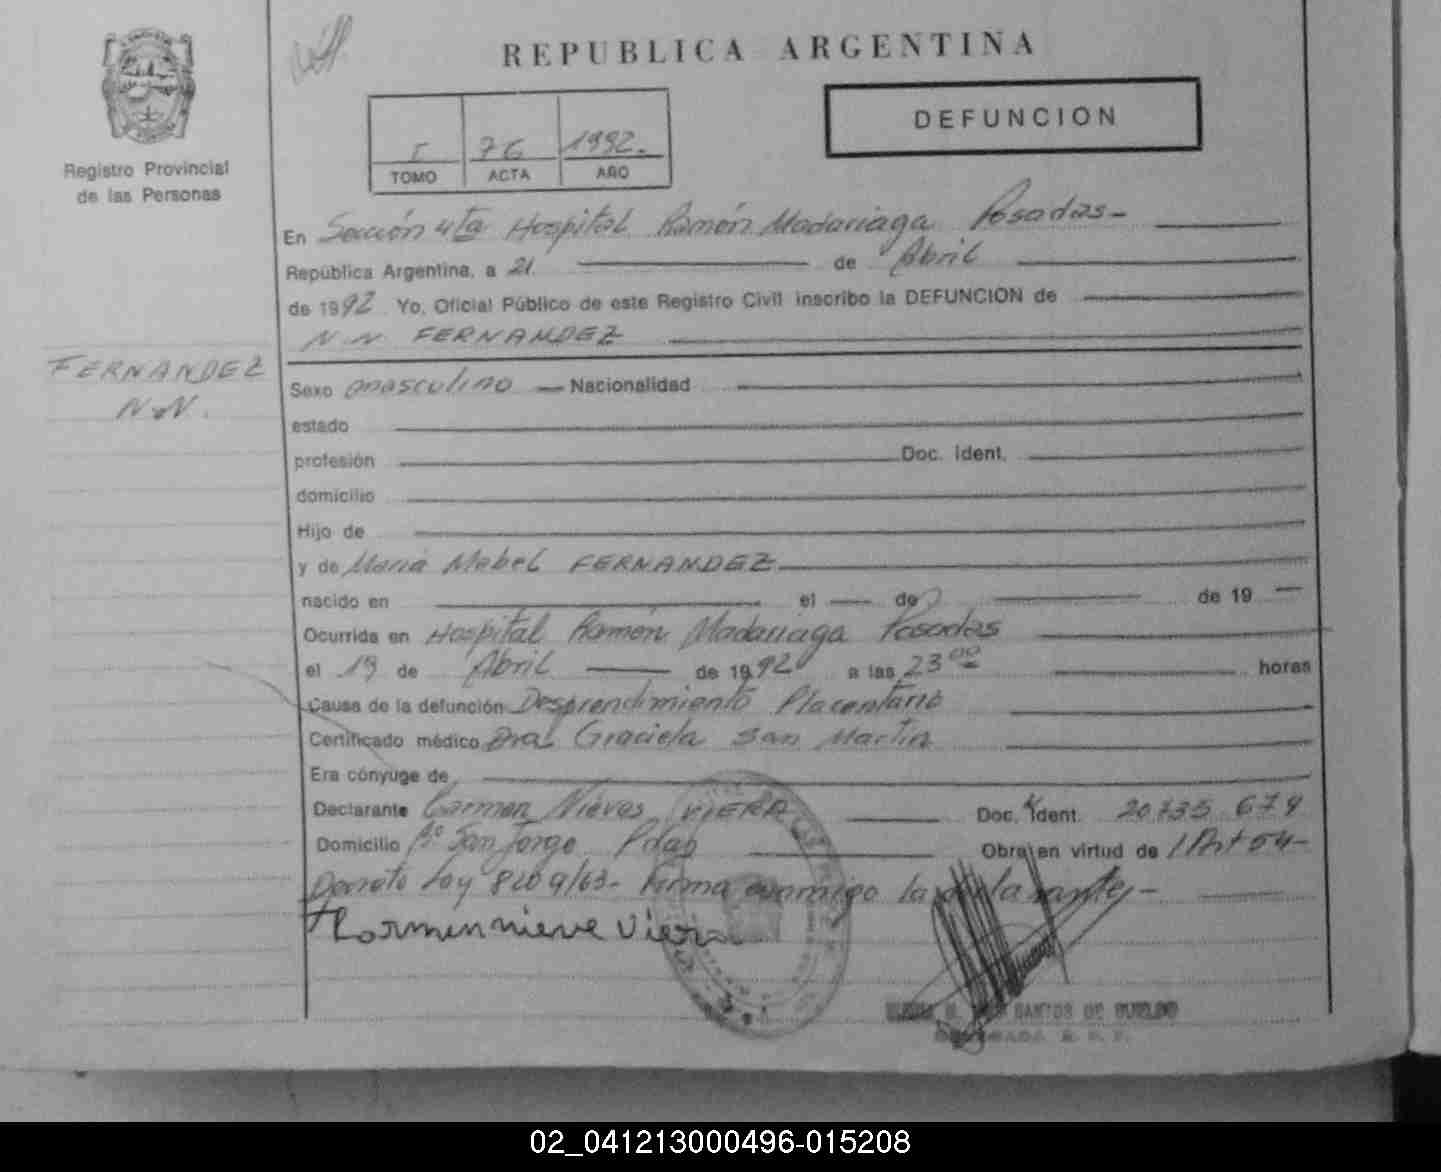 REPUBLICA ARGENTINA
DEFUNCION
I 76 1992.
TOMO ACTA AÑO
Registro Provincial
de las Personas
En Sección 4ta Hospital Ramón Madariaga Posadas-
República Argentina, a 21. de Abril
de 1992 Yo, Oficial Público de este Registro Civil inscribo la DEFUNCION de
N N FERNANDEZ
FERNANDEZ
N.N.
Sexo masculino Nacionalidad
estado
profesión Doc. Ident.
domicilio
Hijo de
y de María Mabel FERNANDEZ
nacido en el de de 19
Ocurrida en Hospital Ramón Madariaga Posadas
el 19 de Abril de 1992 a las 23 00 horas
Causa de la defunción Desprendimiento Placentario
Certificado médico Dra Graciela San Martin
Era cónyuge de
Declarante Carmen Nieves VIERA Doc. Ident. 20.735.679
Domicilio Bº San Jorge Pdas Obra en virtud de Art 54-
Decreto Ley 8209/63- Firma conmigo la declarante-
Carmen nieve viera
SANTOS DE
02_041213000496-015208